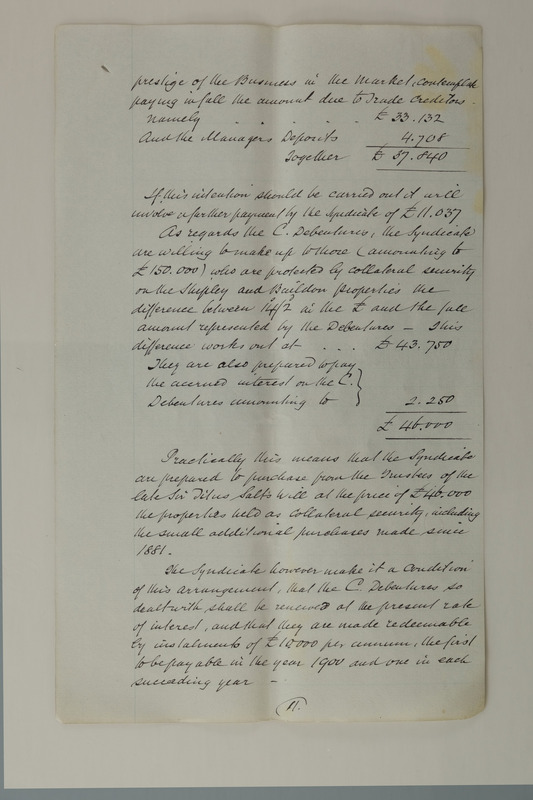 prestige of the Business in the Market, contemplate
paying in full the amount due to Trade Creditors.
namely . . . . . . £33.132
And the Managers Deposits 4.708
Together £37.840
If this intention should be carried out it will
involve a further payment by the Syndicate of £11.037
As regards the C. Debentures, the Syndicate
are willing to make up to those (amounting to
£150.000) who are protected by collateral security
on the Shipley and Baildon properties the
difference between 14/2 in the £ and the full
amount represented by the Debentures – This
difference works out at – . . . £43.750
They are also prepared to pay
the accrued interest on the C.
Debentures amounting to 2.250
£46.000
Practically this means that the Syndicate
are prepared to purchase from the Trustees of the
late Sir Titus Salts Will at the price of £46.000
the properties held as collateral security, including
the small additional purchases made since
1881.
The Syndicate however make it a condition
of this arrangement, that the C. Debentures so
dealt with shall be renewed at the present rate
of interest, and that they are made redeemable
by instalments of £10000 per annum, the first
to be payable in the year 1900 and one in each
succeeding year –
11.